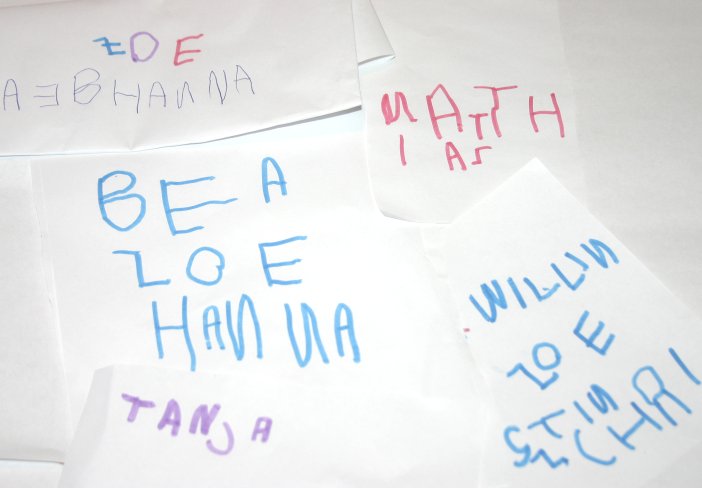 ZOE
AEBHANNA
MATTH
IAS
BEA
ZOE
HANNA
TANJA
WILLIN
ZOE
STIN
CHRI